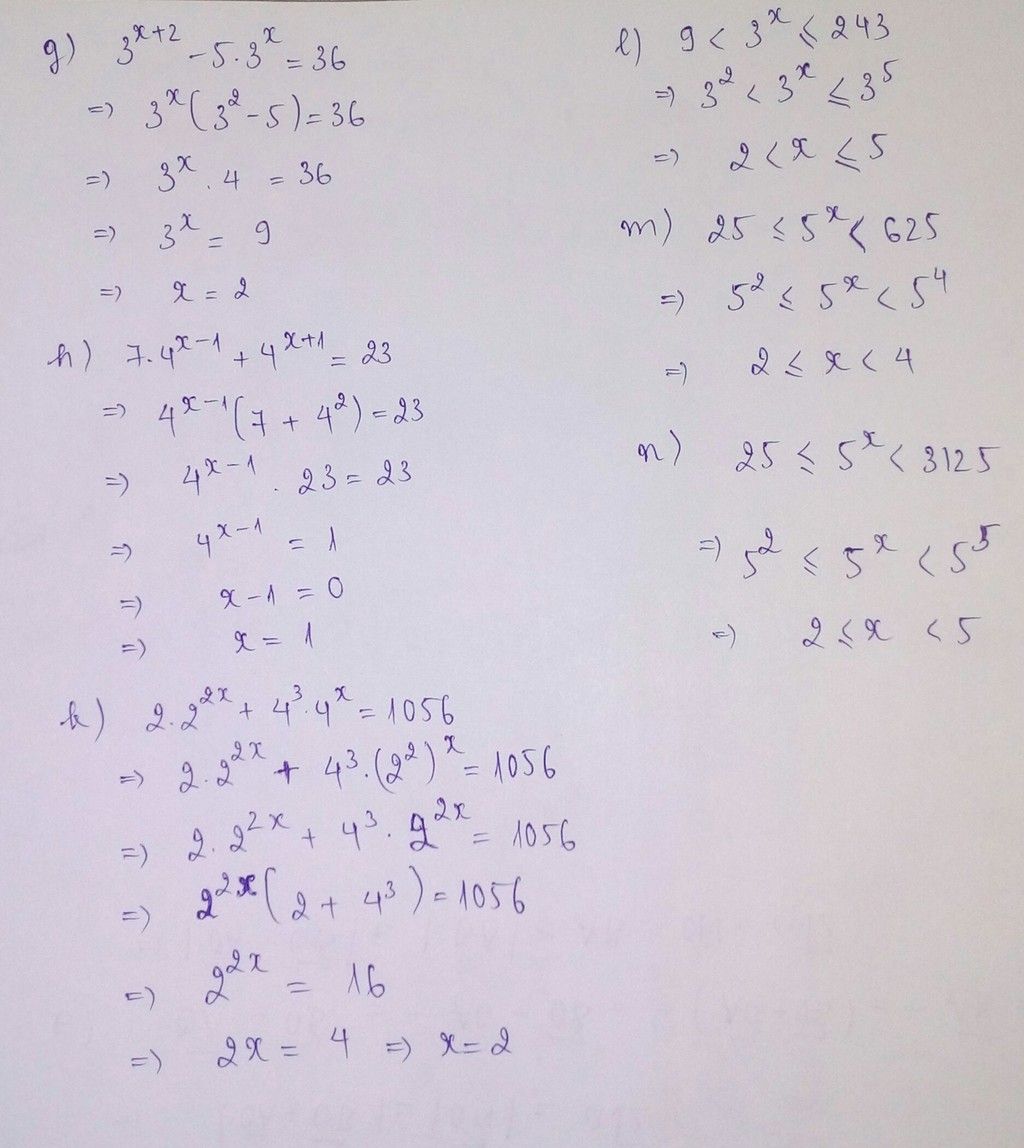 g) 3^{x+2} - 5·3^x = 36
=> 3^x(3^2 - 5) = 36
=> 3^x . 4 = 36
=> 3^x = 9
=> x = 2
h) 7·4^{x-1} + 4^{x+1} = 23
=> 4^{x-1}(7 + 4^2) = 23
=> 4^{x-1} . 23 = 23
=> 4^{x-1} = 1
=> x-1 = 0
=> x = 1
k) 2·2^{2x} + 4^3·4^x = 1056
=> 2·2^{2x} + 4^3·(2^2)^x = 1056
=> 2·2^{2x} + 4^3·2^{2x} = 1056
=> 2^{2x}(2 + 4^3) = 1056
=> 2^{2x} = 16
=> 2x = 4 => x = 2
l) 9 < 3^x ≤ 243
=> 3^2 < 3^x ≤ 3^5
=> 2 < x ≤ 5
m) 25 ≤ 5^x < 625
=> 5^2 ≤ 5^x < 5^4
=> 2 ≤ x < 4
n) 25 ≤ 5^x < 3125
=> 5^2 ≤ 5^x < 5^5
=> 2 ≤ x < 5